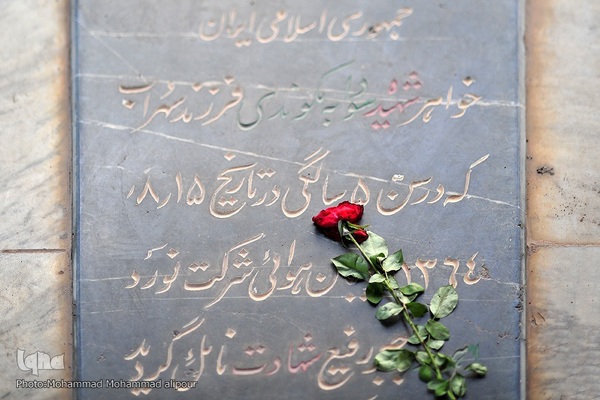 جمهوری اسلامی ایران
خواهر شهیده فرزند سهراب
که در سن ۵ سالگی در تاریخ ۱۵ر۸ر
۱۳۶۴ هوائی شرکت نورد
رفیع شهادت نائل گردید
iqna
Photo:Mohammad Mohammad alipour